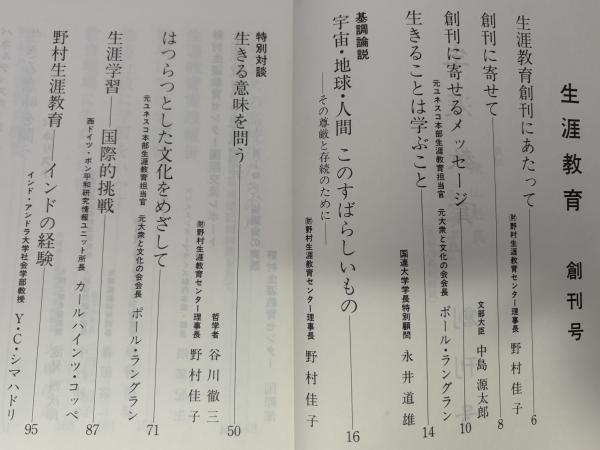 生涯教育　創刊号
生涯教育創刊にあたって
㈶野村生涯教育センター理事長　野村佳子　6
創刊に寄せて
文部大臣　中島源太郎　8
創刊に寄せるメッセージ
元ユネスコ本部生涯教育担当官　元大衆と文化の会会長　ポール・ラングラン　10
生きることは学ぶこと
国連大学学長特別顧問　永井道雄　14
基調論説
宇宙・地球・人間　このすばらしいもの
──その尊厳と存続のために──
㈶野村生涯教育センター理事長　野村佳子　16
特別対談
生きる意味を問う
哲学者　谷川徹三
㈶野村生涯教育センター理事長　野村佳子　50
はつらつとした文化をめざして
元ユネスコ本部生涯教育担当官　元大衆と文化の会会長　ポール・ラングラン　71
生涯学習──国際的挑戦
西ドイツ・ボン平和研究情報ユニット所長　カールハインツ・コッペ　87
野村生涯教育──インドの経験
インド・アンドラ大学社会学部教授　Y・C・シマハドリ　95